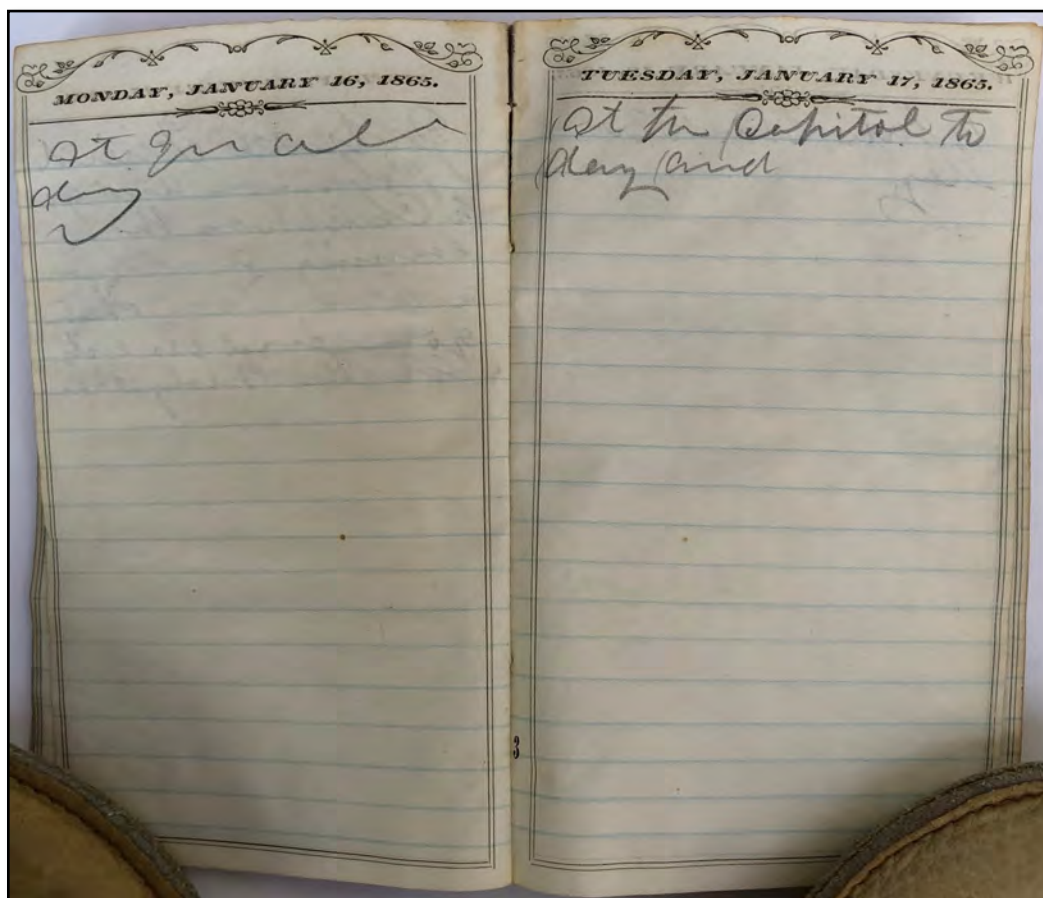 MONDAY, JANUARY 16, 1865.
at all
day
TUESDAY, JANUARY 17, 1865.
at the Capitol to
day and
3